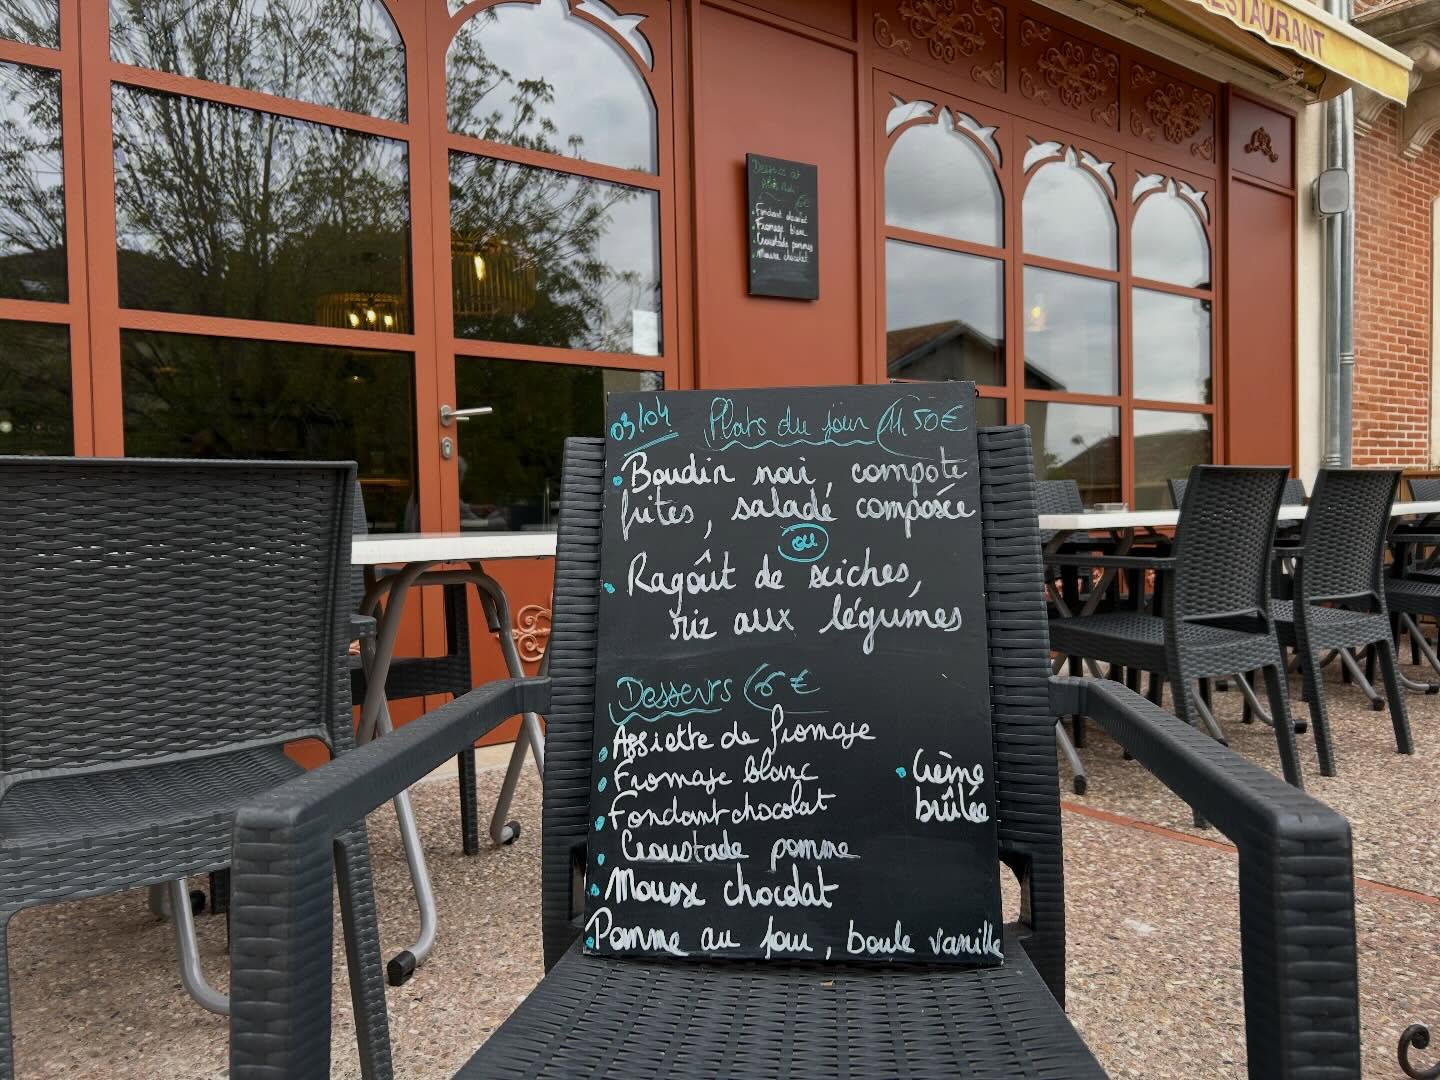 RESTAURANT
Desserts
Fondant chocolat
Fromage blanc
Croustade pommes
Mousse chocolat
03/04 Plats du jour 11,50€
Boudin noir, compote
frites, salade composée
ou
Ragoût de seiches,
riz aux légumes
Desserts 6€
Assiette de fromage
Fromage blanc
Fondant chocolat
Croustade pomme
Mousse chocolat
Pomme au four, boule vanille
Crème
brûlée